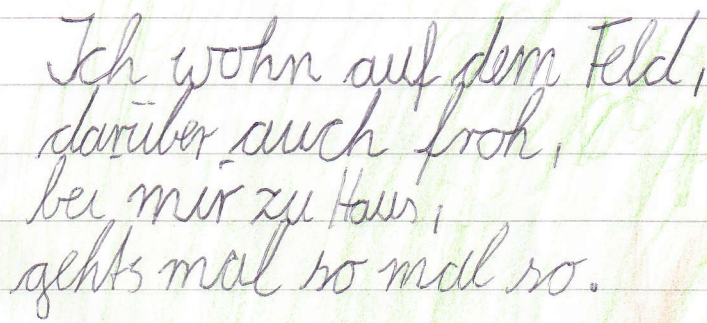 Ich wohn auf dem Feld,
darüber auch froh,
bei mir zu Haus,
gehts mal so mal so.